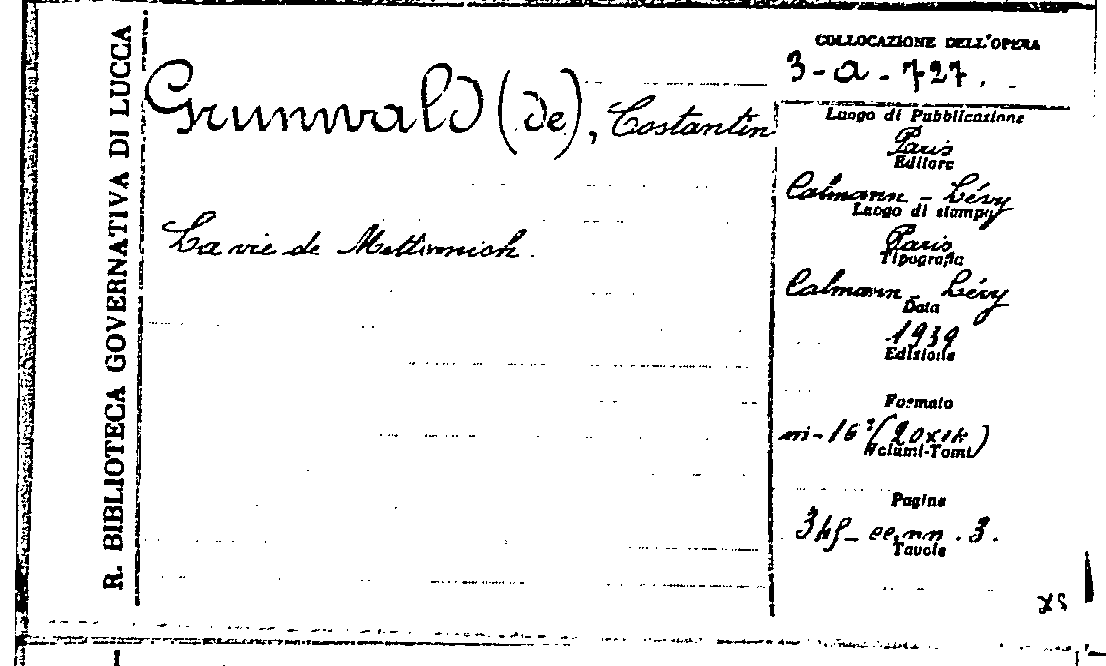 R. BIBLIOTECA GOVERNATIVA DI LUCCA
Grunwald (de), Costantin
La vie de Metternich.
COLLOCAZIONE DELL'OPERA
3-a-727.
Luogo di Pubblicazione
Paris
Editore
Calmann-Lévy
Luogo di stampa
Paris
Tipografia
Calmann-Lévy
Data
1939
Edizione
Formato
in-16° (20x14)
Volumi-Tomi
Pagine
nn. 3.
Tavole